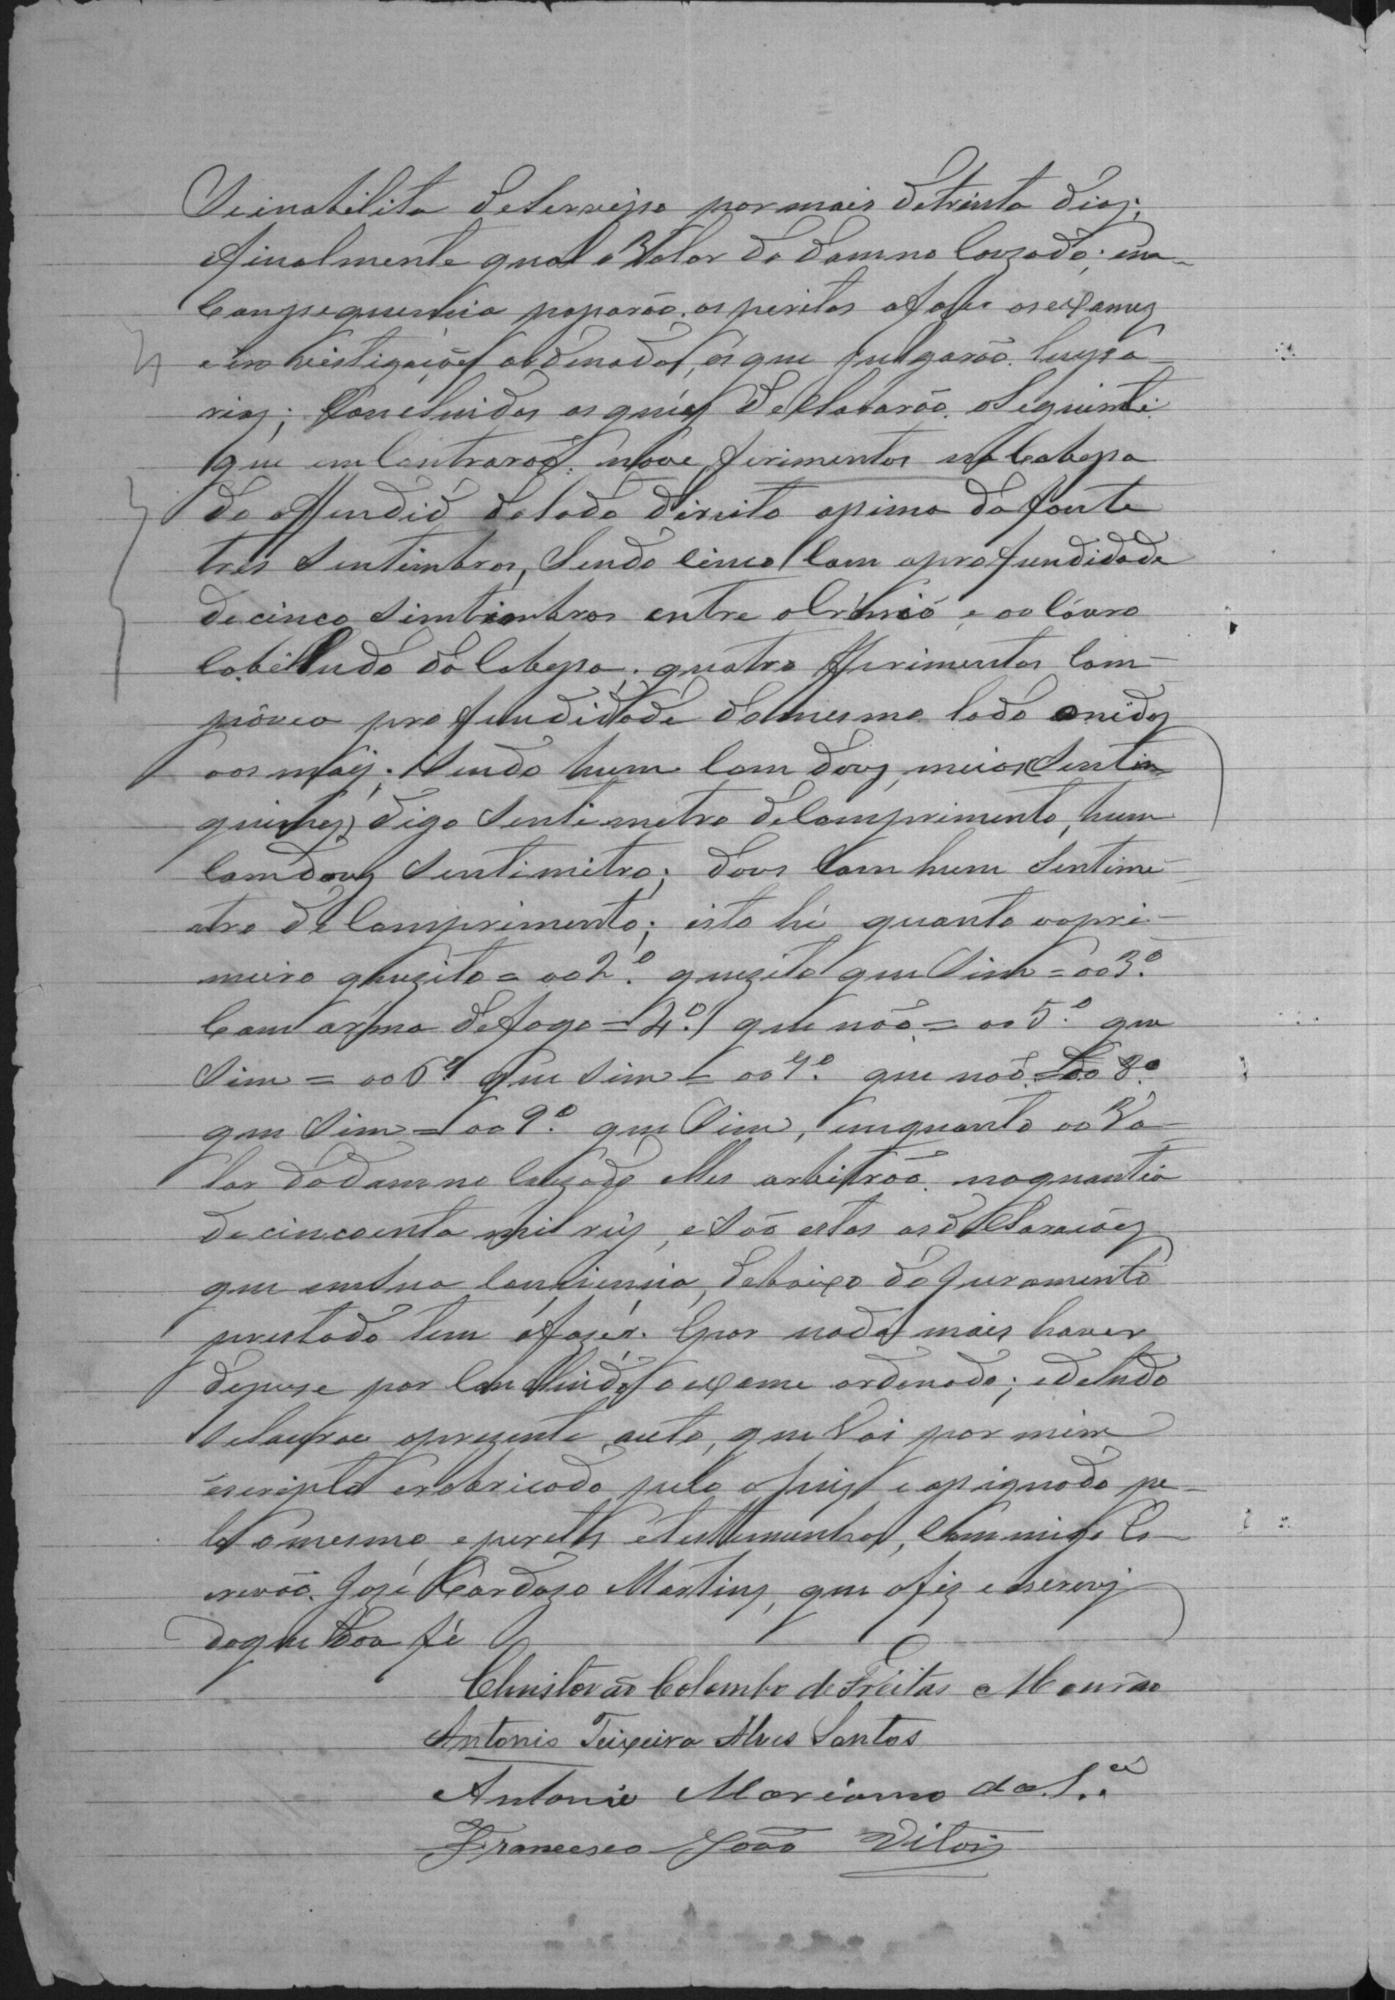 se inabilita de serviço por mais de trinta dias;
e finalmente qual o Valor do damno Cauzado; em
Consequencia paçarão os peritos a fazer os exames
e investigações ordenados, e os que julgarão luçça-
rias; Concluidos os quaes declararão o Seguinte:
que encontrarão nove ferimentos na Cabeça
do offendido do lado direito acima da fonte
tres Sentimbros, Sendo cinco com a profundidade
de cinco Simtimbros entre o Craneo e ao Couro
Cabelludo da Cabeça; quatro fferimentos Com
pouca profundidade do mesmo lado unidos
aos mais; Sendo hum Com dous, meios Sentim
digo Sentimetro de Comprimento, hum
Com dous Sentimitro; dous Com hum Sentime-
tro de Comprimento; isto hé quanto ao pri-
meiro quezito = ao 2º. quezito que Sim = ao 3º.
Com arma de fogo = 4º. que não = ao 5º. que
Sim = ao 6º que sim = ao 7º. que não = ao 8º.
que Sim = ao 9º. que Sim, emquanto ao Va-
lor do damno Cauzado elles arbitrão na quantia
de cincoenta mil reis, e São estas as declaracões
que em sua Conciencia, debaixo do juramento
prestado tem á fazer. E por nada mais haver
deu-se por Concluido o exame ordenado; e de tudo
se lavrou o prezente auto, que Vai por mim
escripto e rubricado pelo o Juiz e assignado pe-
lo o mesmo e peritos e testemunhas, Commigo Es-
crivão José Cardozo Martins, que o fiz e escrevi
do que Dou fé
Christovão Colombo de Freitas Mourão
Antonio Teixeira Alves Santos
Antonio Mariano da S.ª
Francisco João Vitor